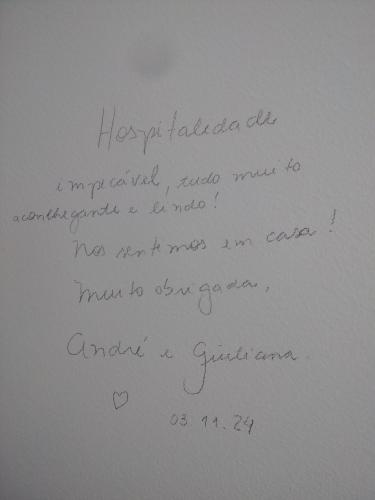 Hospitalidade
impecável, tudo muito
aconchegante e lindo!
Nos sentimos em casa!
Muito obrigada,
André e Giuliana.
♡
03.11.24